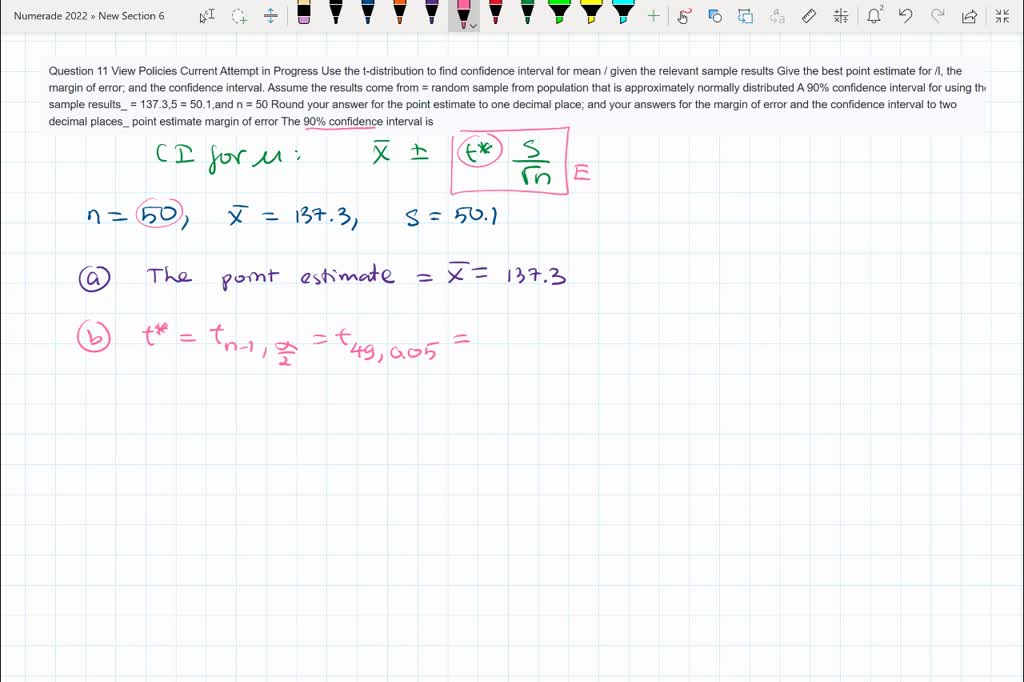 Numerade 2022 » New Section 6
Question 11 View Policies Current Attempt in Progress Use the t-distribution to find confidence interval for mean / given the relevant sample results Give the best point estimate for /l, the
margin of error; and the confidence interval. Assume the results come from = random sample from population that is approximately normally distributed A 90% confidence interval for using the
sample results_ = 137.3,5 = 50.1,and n = 50 Round your answer for the point estimate to one decimal place; and your answers for the margin of error and the confidence interval to two
decimal places_ point estimate margin of error The 90% confidence interval is
CI for μ: x̄ ± t* s/√n E
n = 50, x̄ = 137.3, s = 50.1
(a) The point estimate = x̄ = 137.3
(b) t* = t n-1, α/2 = t 49, 0.05 =